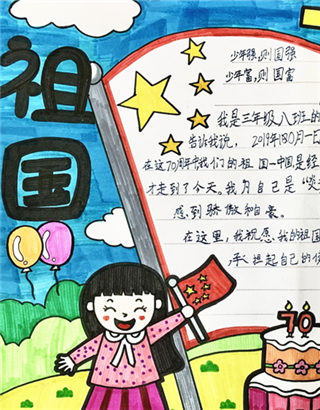 祖国
少年强,则国强
少年富,则国富
我是三年级八班的
告诉我说,2019年10月一日
在这70周年市我们的祖国一中国是经
才走到了今天。我为自己是“炎
感到骄傲和自豪。
在这里,我祝愿我的祖国
承担起自己的
70